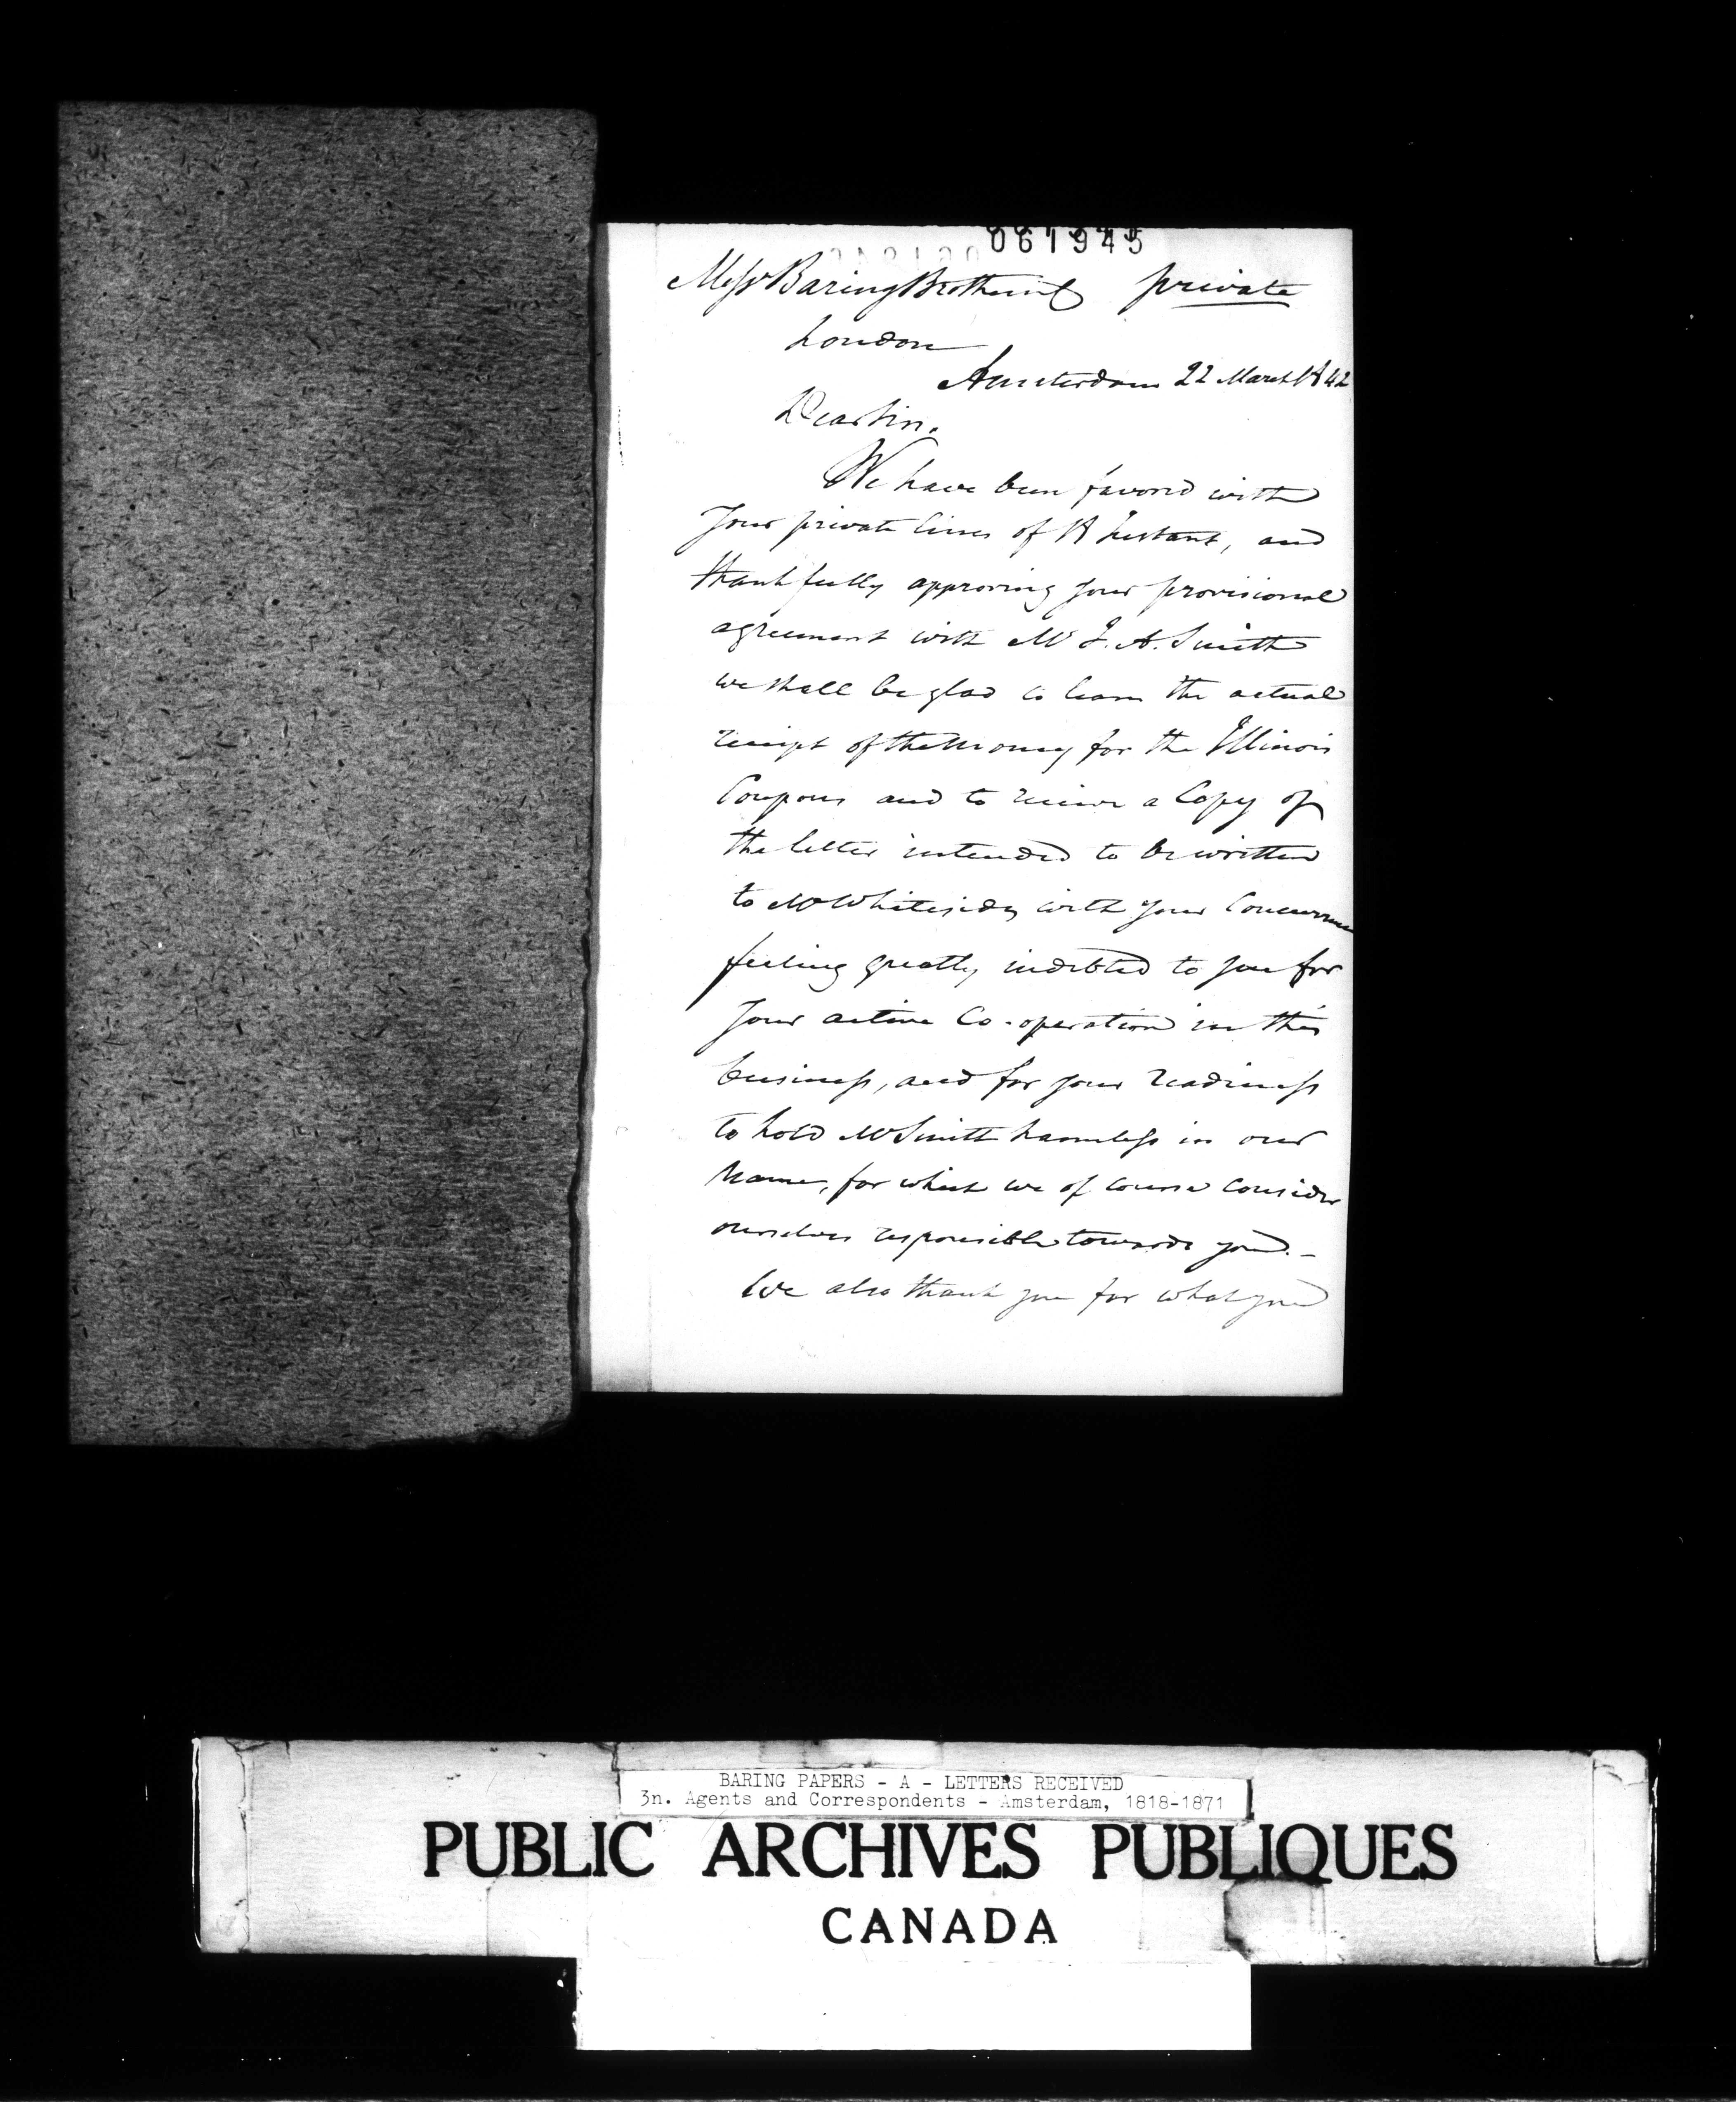 061945
Messrs Baring Brothers & Co private
London
Amsterdam 22 March 1842
Dear Sirs.
We have been favored with
Your private lines of 18 Instant, and
thankfully approving your provisional
agreement with Mr J. A. Smith
we shall be glad to learn the actual
receipt of the Money for the Illinois
Coupons and to receive a Copy of
the letter intended to be written
to Mr Whiteside, with your Concurrence
feeling greatly indebted to you for
Your active Co-operation in this
business, and for your readiness
to hold Mr Smith harmless in our
Name, for which we of course consider
ourselves responsible towards you. –
We also thank you for what you
BARING PAPERS - A - LETTERS RECEIVED
3n. Agents and Correspondents - Amsterdam, 1818-1871
PUBLIC ARCHIVES PUBLIQUES
CANADA